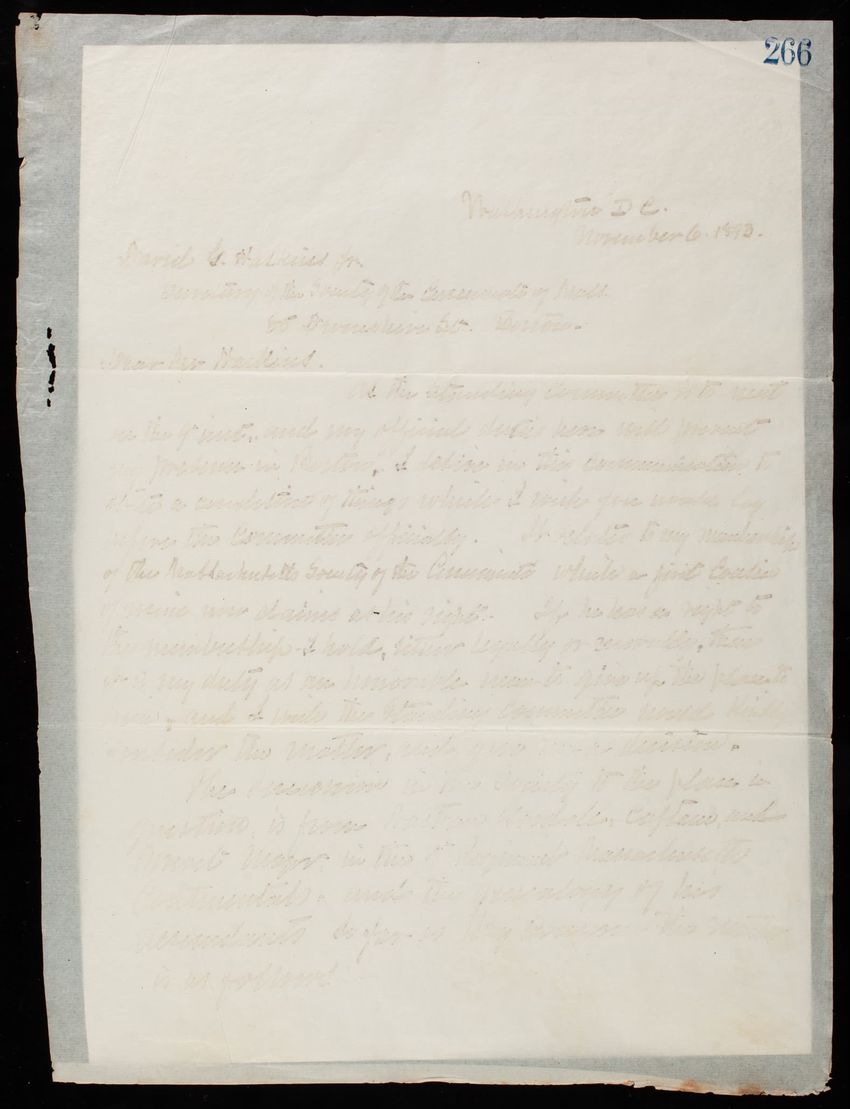 266
Washington D C.
November 6. 1893.
David G. Haskins Jr.
Secretary of the Society of the Cincinnati of Mass.
Devonshire St. Boston.
Dear Mr Haskins.
As the Standing Committee is to meet
on the 9 inst. and my official duties here will prevent
my presence in Boston, I desire in this communication to
state a condition of things which I wish you would lay
before the Committee officially. It relates to my membership
of the Massachusetts Society of the Cincinnati which a first Cousin
of mine now claims as his right. If he has a right to
the membership I hold, either legally or morally, then
it is my duty as an honorable man to give up the place to
him, and I wish the Standing Committee would kindly
consider the matter, and give me a decision.
The succession in the Society to the place in
question, is from Captain, and
Brevet Major in the Regiment Massachusetts
Continental, and the genealogy of his
descendants so far as they concern the matter
is as follows